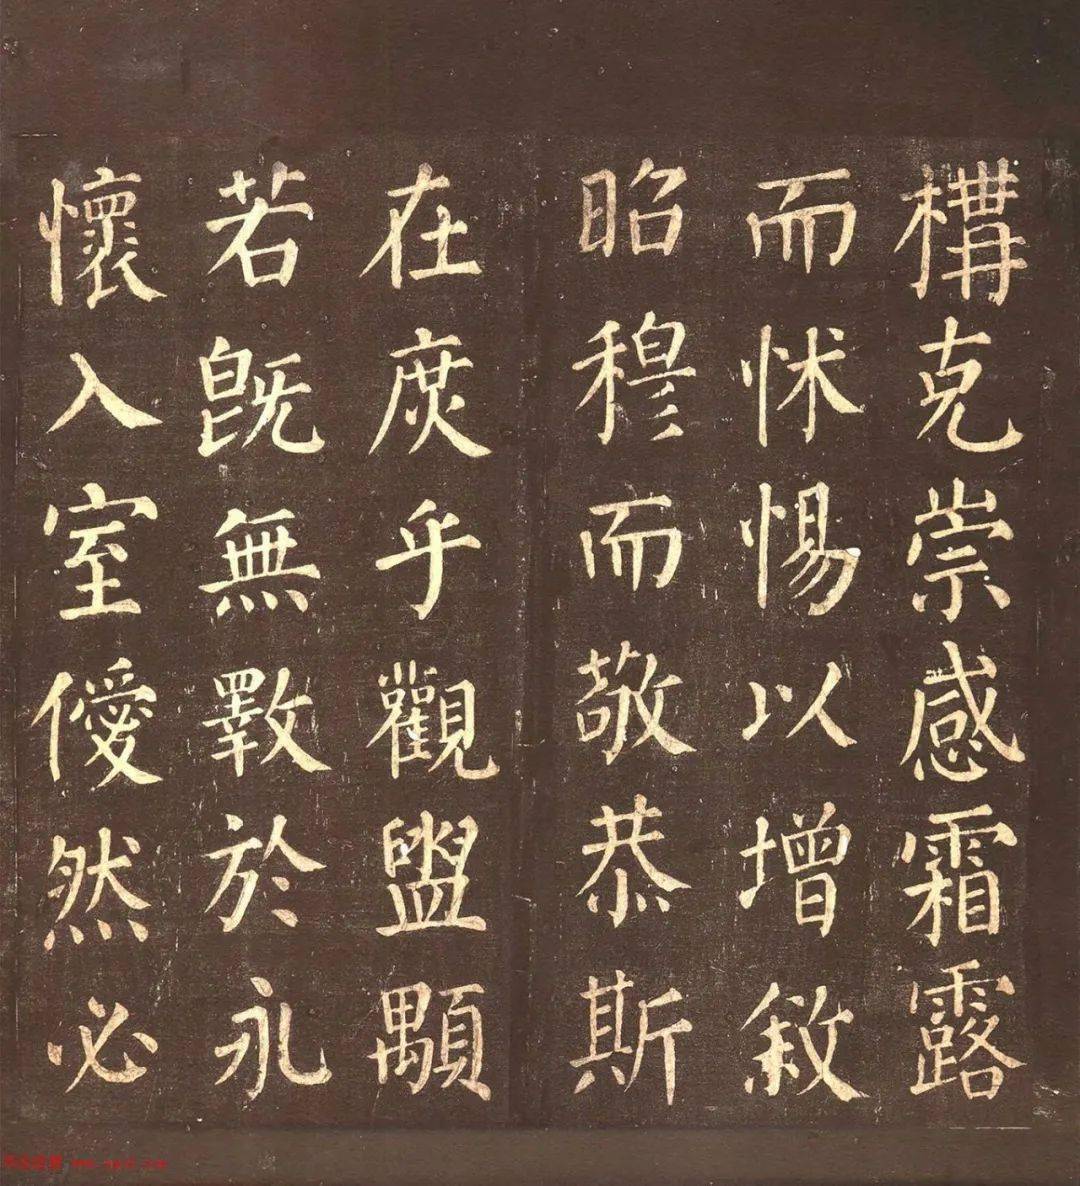 構克崇感霜露
而怵惕以增敘
昭穆而敬恭斯
在庶乎觀盥顒
若既無斁於永
懷入室僾然必